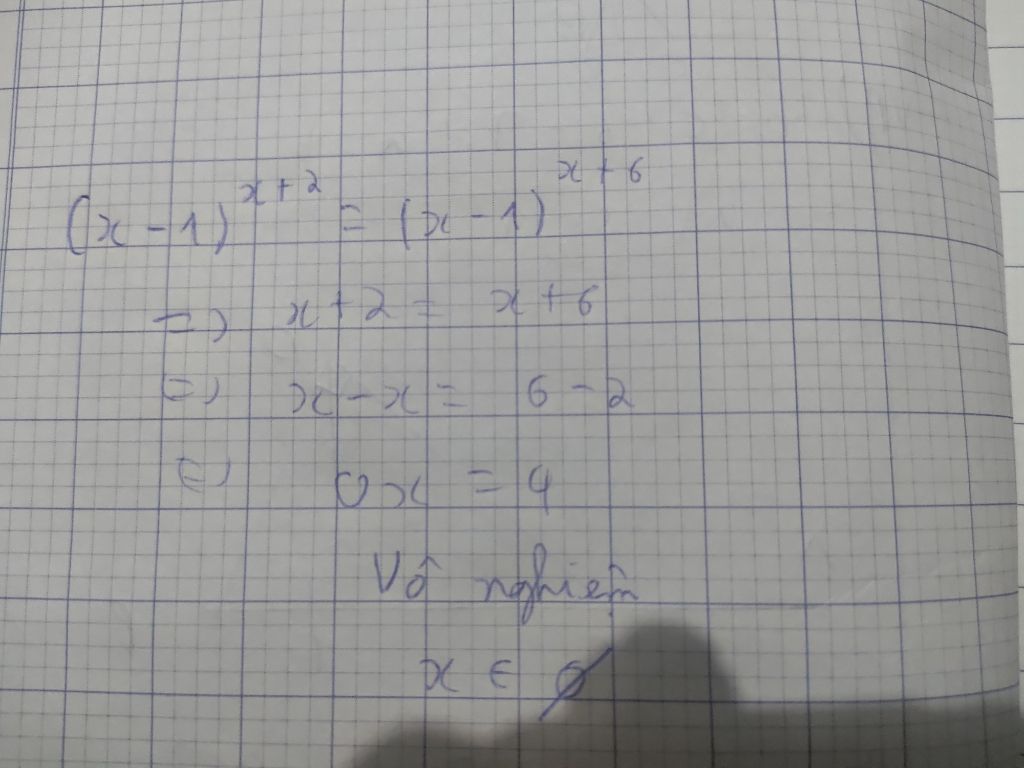 (x - 1)^{x+2} = (x - 1)^{x+6}
=> x + 2 = x + 6
=> x - x = 6 - 2
=> 0x = 4
Vô nghiệm
x ∈ ∅